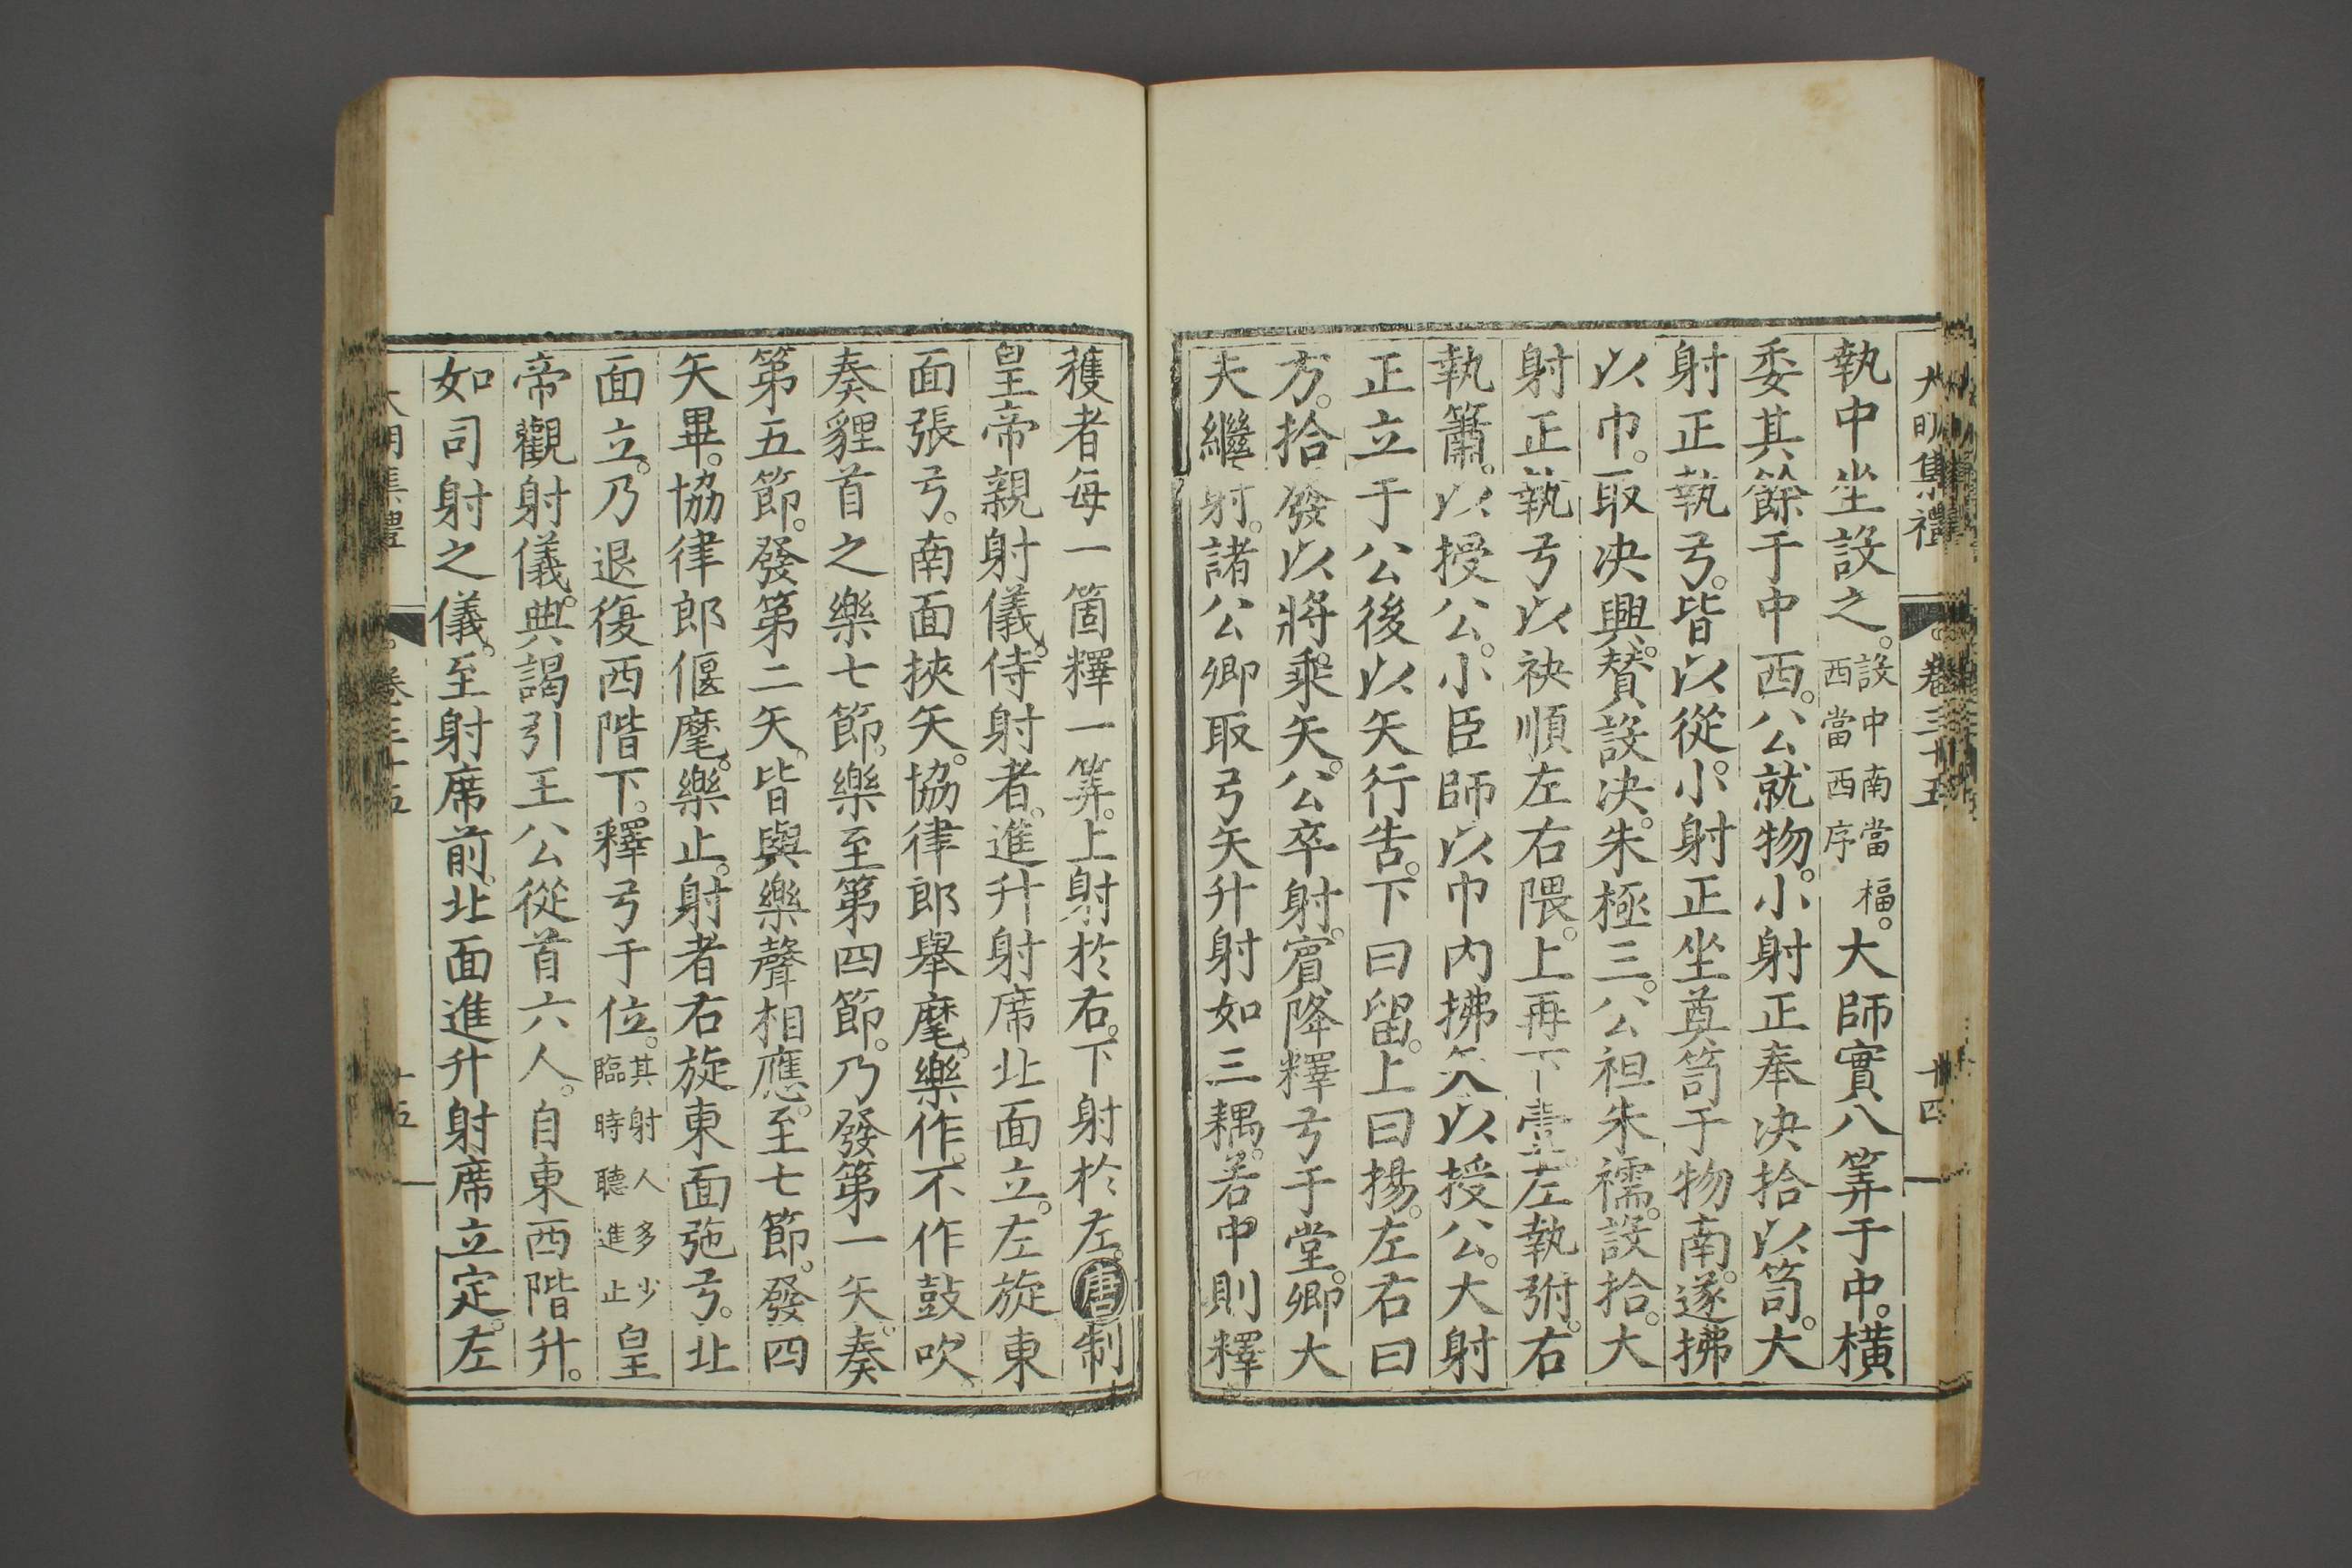 大明集禮 卷三十五 十四
執中坐設之。設中南當楅。西當西序大師實八筭于中。橫
委其餘于中西。公就物。小射正奉决拾以笥。大
射正執弓。皆以從。小射正坐奠笥于物南。遂拂
以巾。取决興。贊設决。朱極三。公袒朱襦。設拾。大
射正執弓以袂順左右隈。上再下壹。左執弣。右
執簫。以授公。小臣師以巾内拂矢以授公。大射
正立于公後以矢行告。下曰留。上曰揚。左右曰
方。拾發以將乘矢。公卒射。賓降釋弓于堂。卿大
夫繼射。諸公卿取弓矢升射如三耦。若中則釋
獲者每一箇釋一筭。上射於右。下射於左。唐制
皇帝親射儀。侍射者。進升射席北面立。左旋東
面張弓。南面挾矢。協律郎舉麾。樂作。不作鼓吹。
奏貍首之樂七節。樂至第四節。乃發第一矢。奏
第五節。發第二矢。皆與樂聲相應。至七節。發四
矢畢。協律郎偃麾。樂止。射者右旋東面弛弓。北
面立。乃退復西階下。釋弓于位。其射人多少臨時聽進止皇
帝觀射儀。典謁引王公從首六人。自東西階升。
如司射之儀。至射席前。北面進升射席立定。左
大明集禮 卷三十五 十五